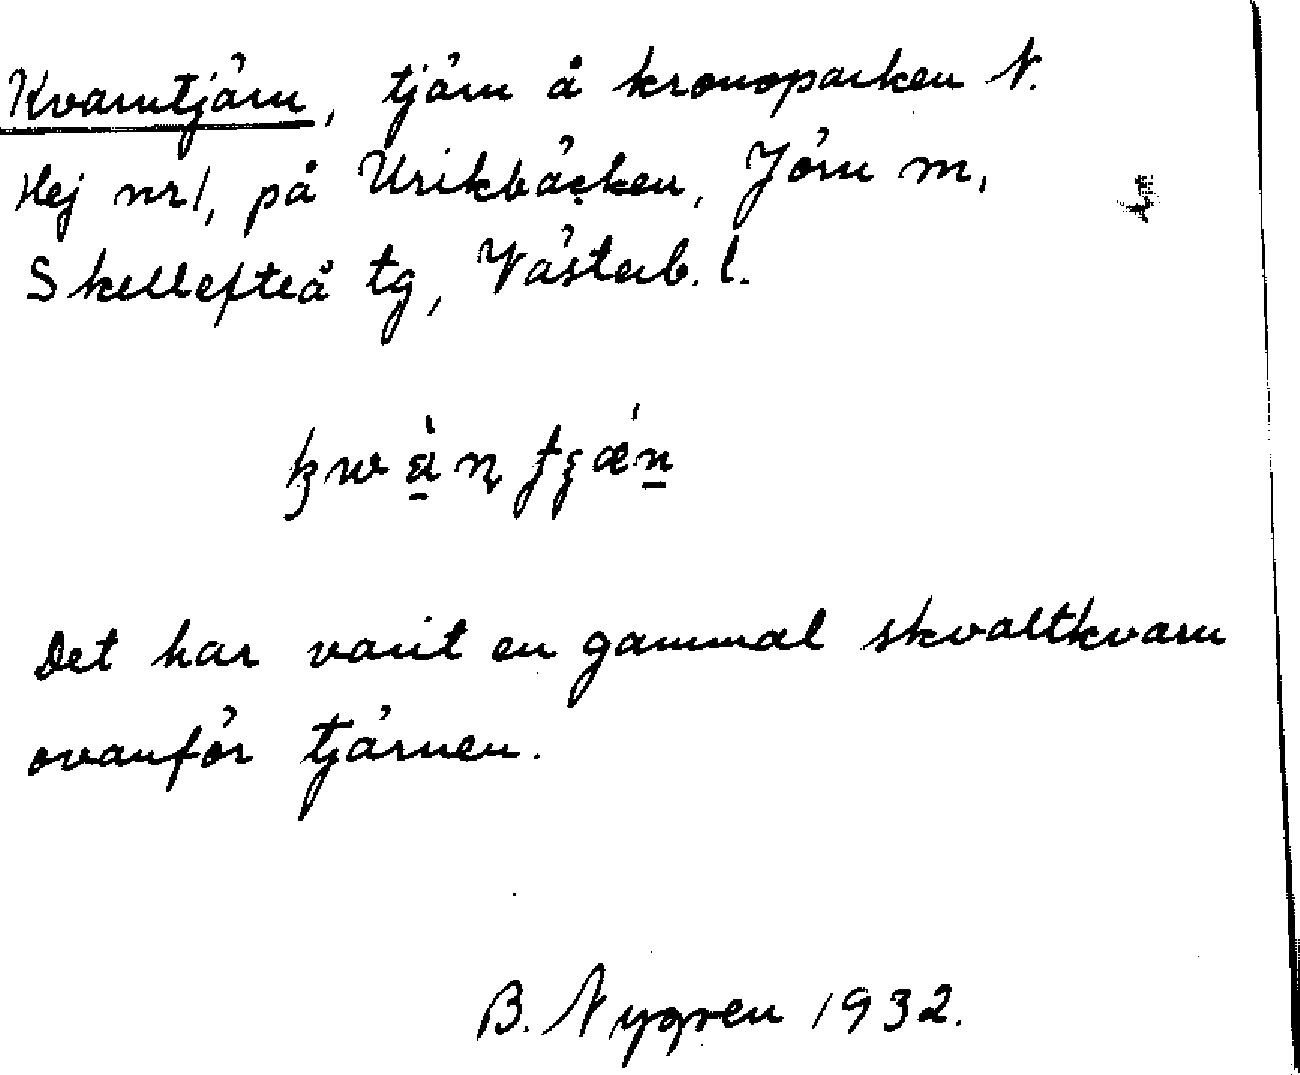 Kvarntjärn, tjärn å kronoparken N.
Hej nr 1, på Urikbäcken, Jörn m,
Skellefteå tg, Västerb. l.
Det har varit en gammal skvaltkvarn
ovanför tjärnen.
B. Nygren 1932.